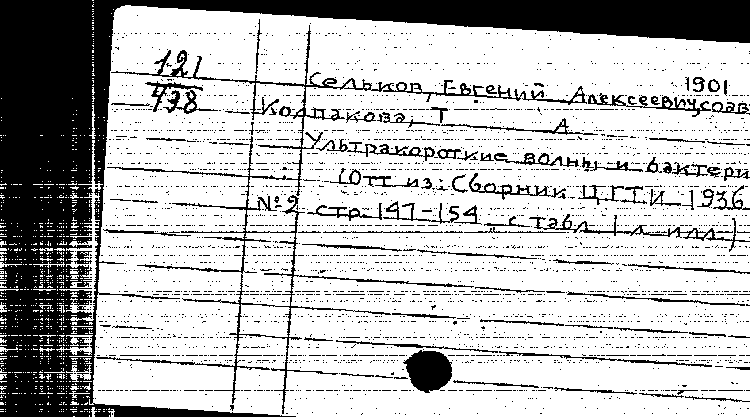 121
438
1901
Сельков, Евгений Алексеевич, соав
Колпакова, Т А
Ультракороткие волны и бактери
(Отт из: Сборник Ц.Г.Т.И. 1936
№2 стр. 147-154 с табл 1 л илл)